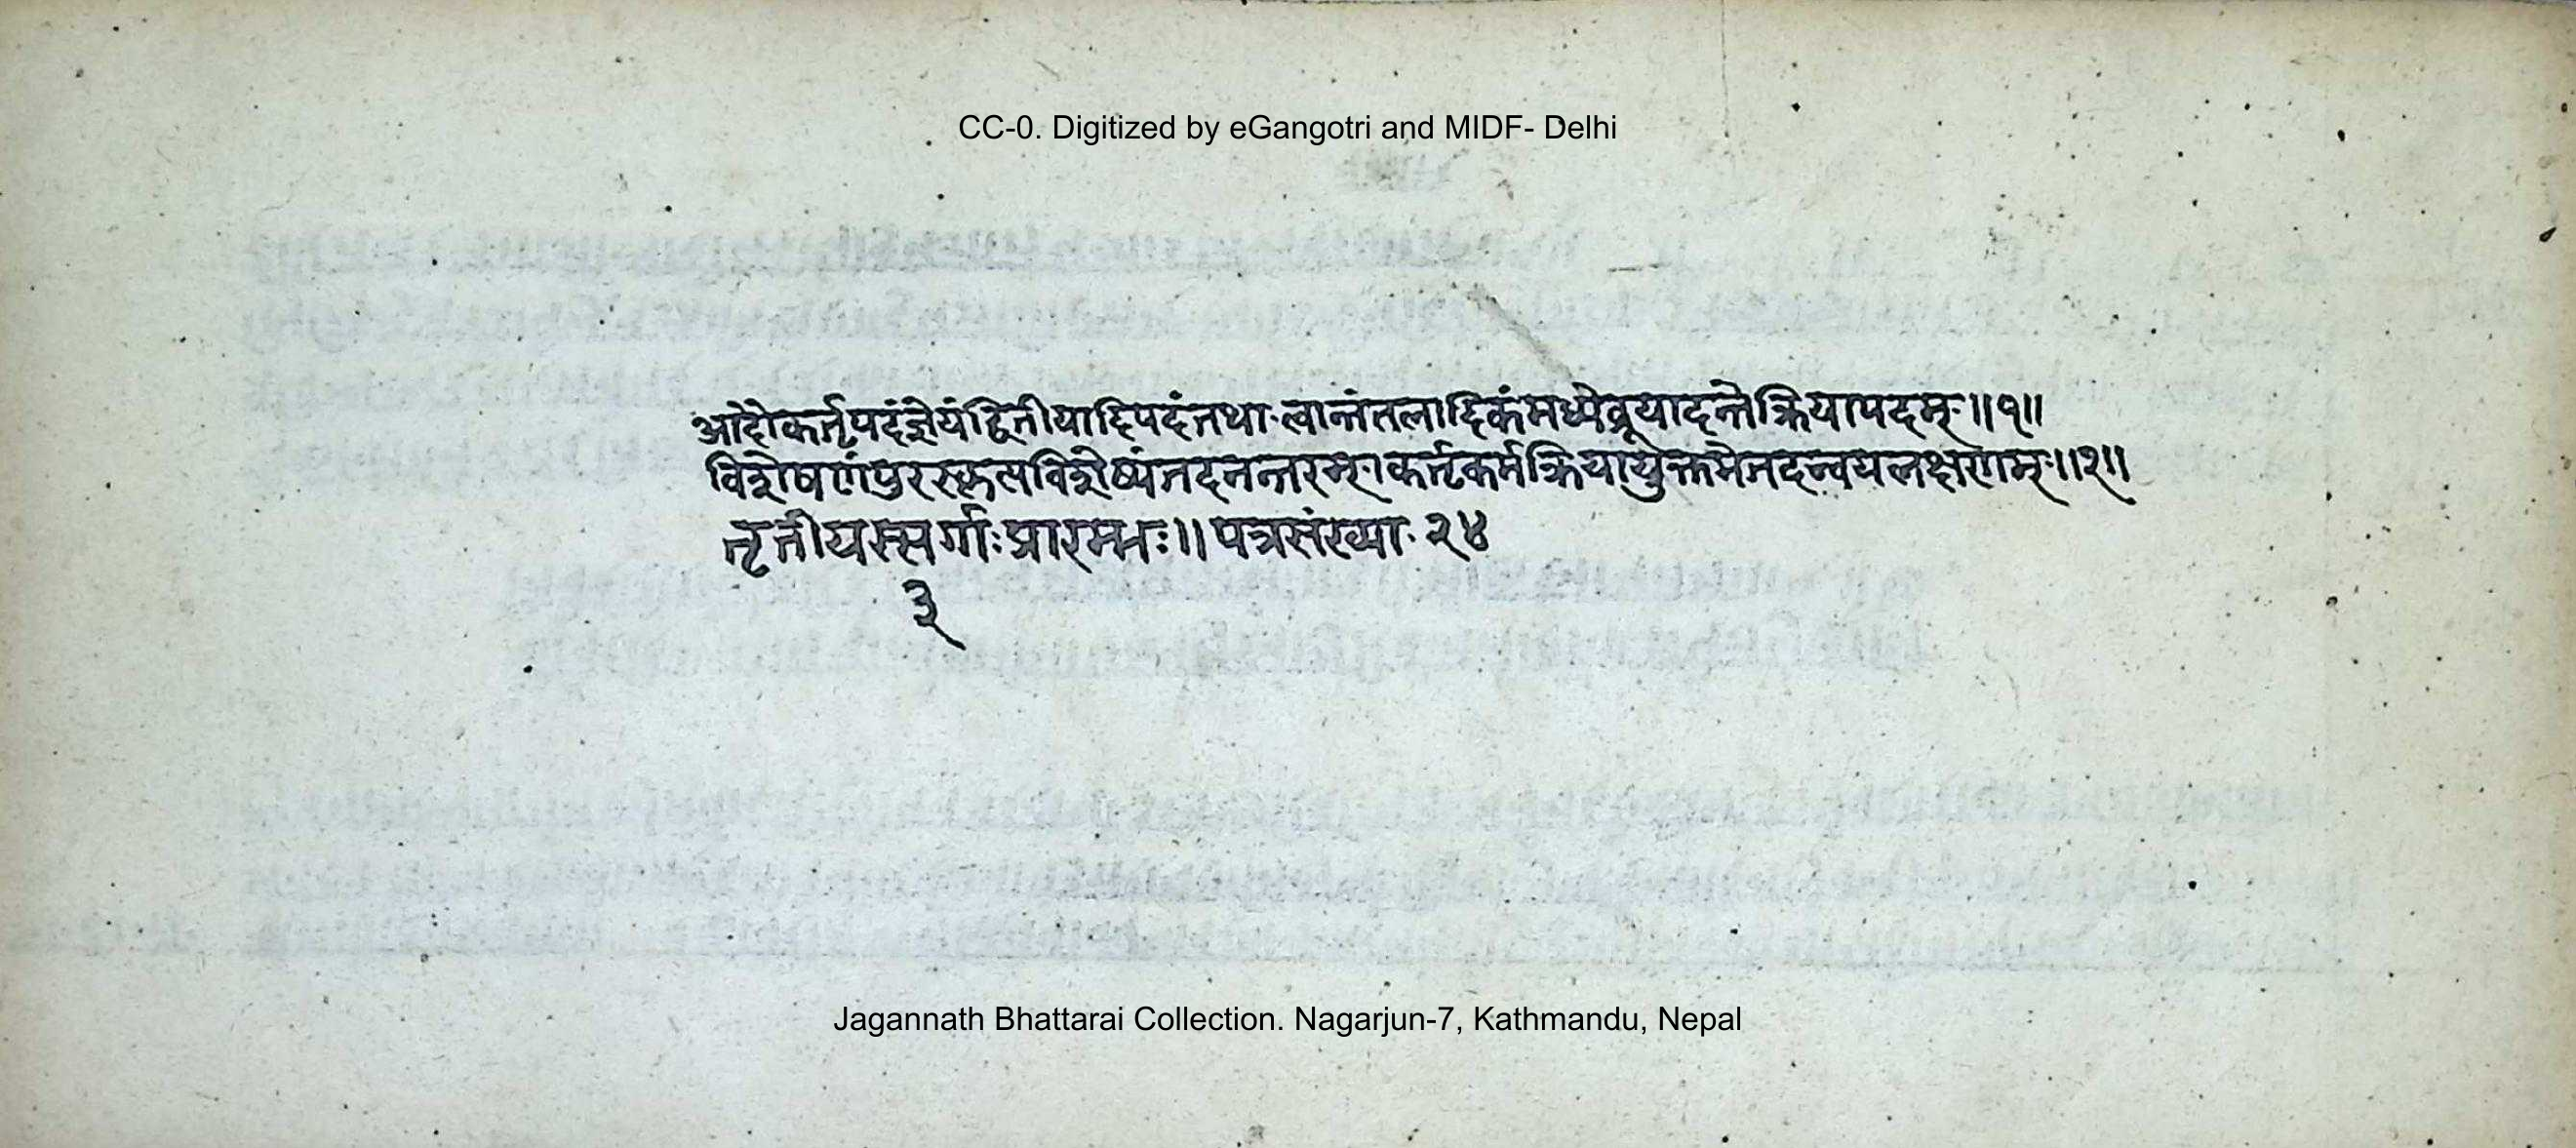 CC-0. Digitized by eGangotri and MIDF- Delhi
आदौकर्तृपदंज्ञेयंद्वितीयादिपदंतथा त्वान्तंतलादिकंमध्येब्रूयादन्तेक्रियापदम्॥१॥
विशेषणंपुरस्कृत्यविशेष्यंतदनन्तरम्।कर्तृकर्मक्रियायुक्तमेतदन्वयलक्षणम्॥२॥
तृतीयस्सर्गाःप्रारम्भः॥पत्रसंख्या २४
३
Jagannath Bhattarai Collection. Nagarjun-7, Kathmandu, Nepal